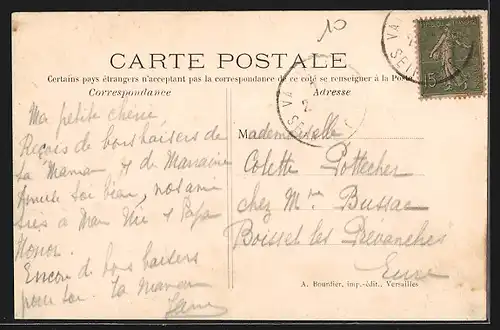 10
CARTE POSTALE
Certains pays étrangers n'acceptant pas la correspondance de ce côté se renseigner à la Poste
Correspondance
Adresse
15
Ma petite chérie
Reçois de bons baisers de
ta Maman & de
Amuse toi bien,
à & Papa
Encore de bons baisers
pour toi. Ta Maman
Mademoiselle
Colette Pottecher
chez Mme Bussac
Boisset les Prévanches
Eure
A. Bourdier, imp.-édit., Versailles